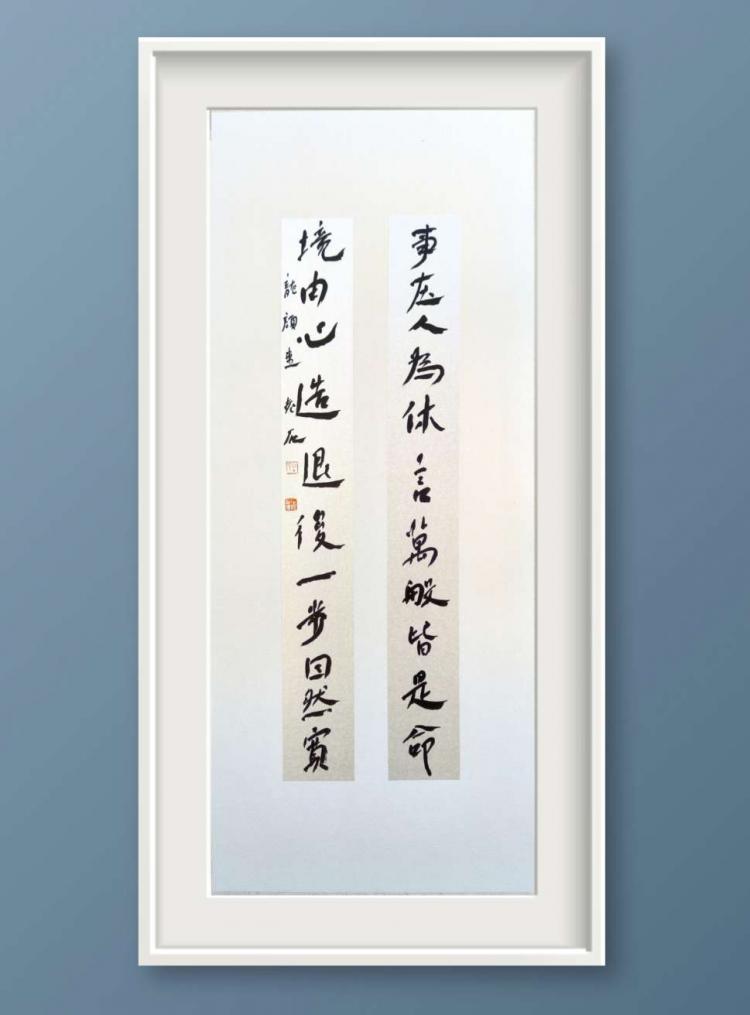 事在人為休言萬般皆是命
境由心造退後一步自然寬
龍顏